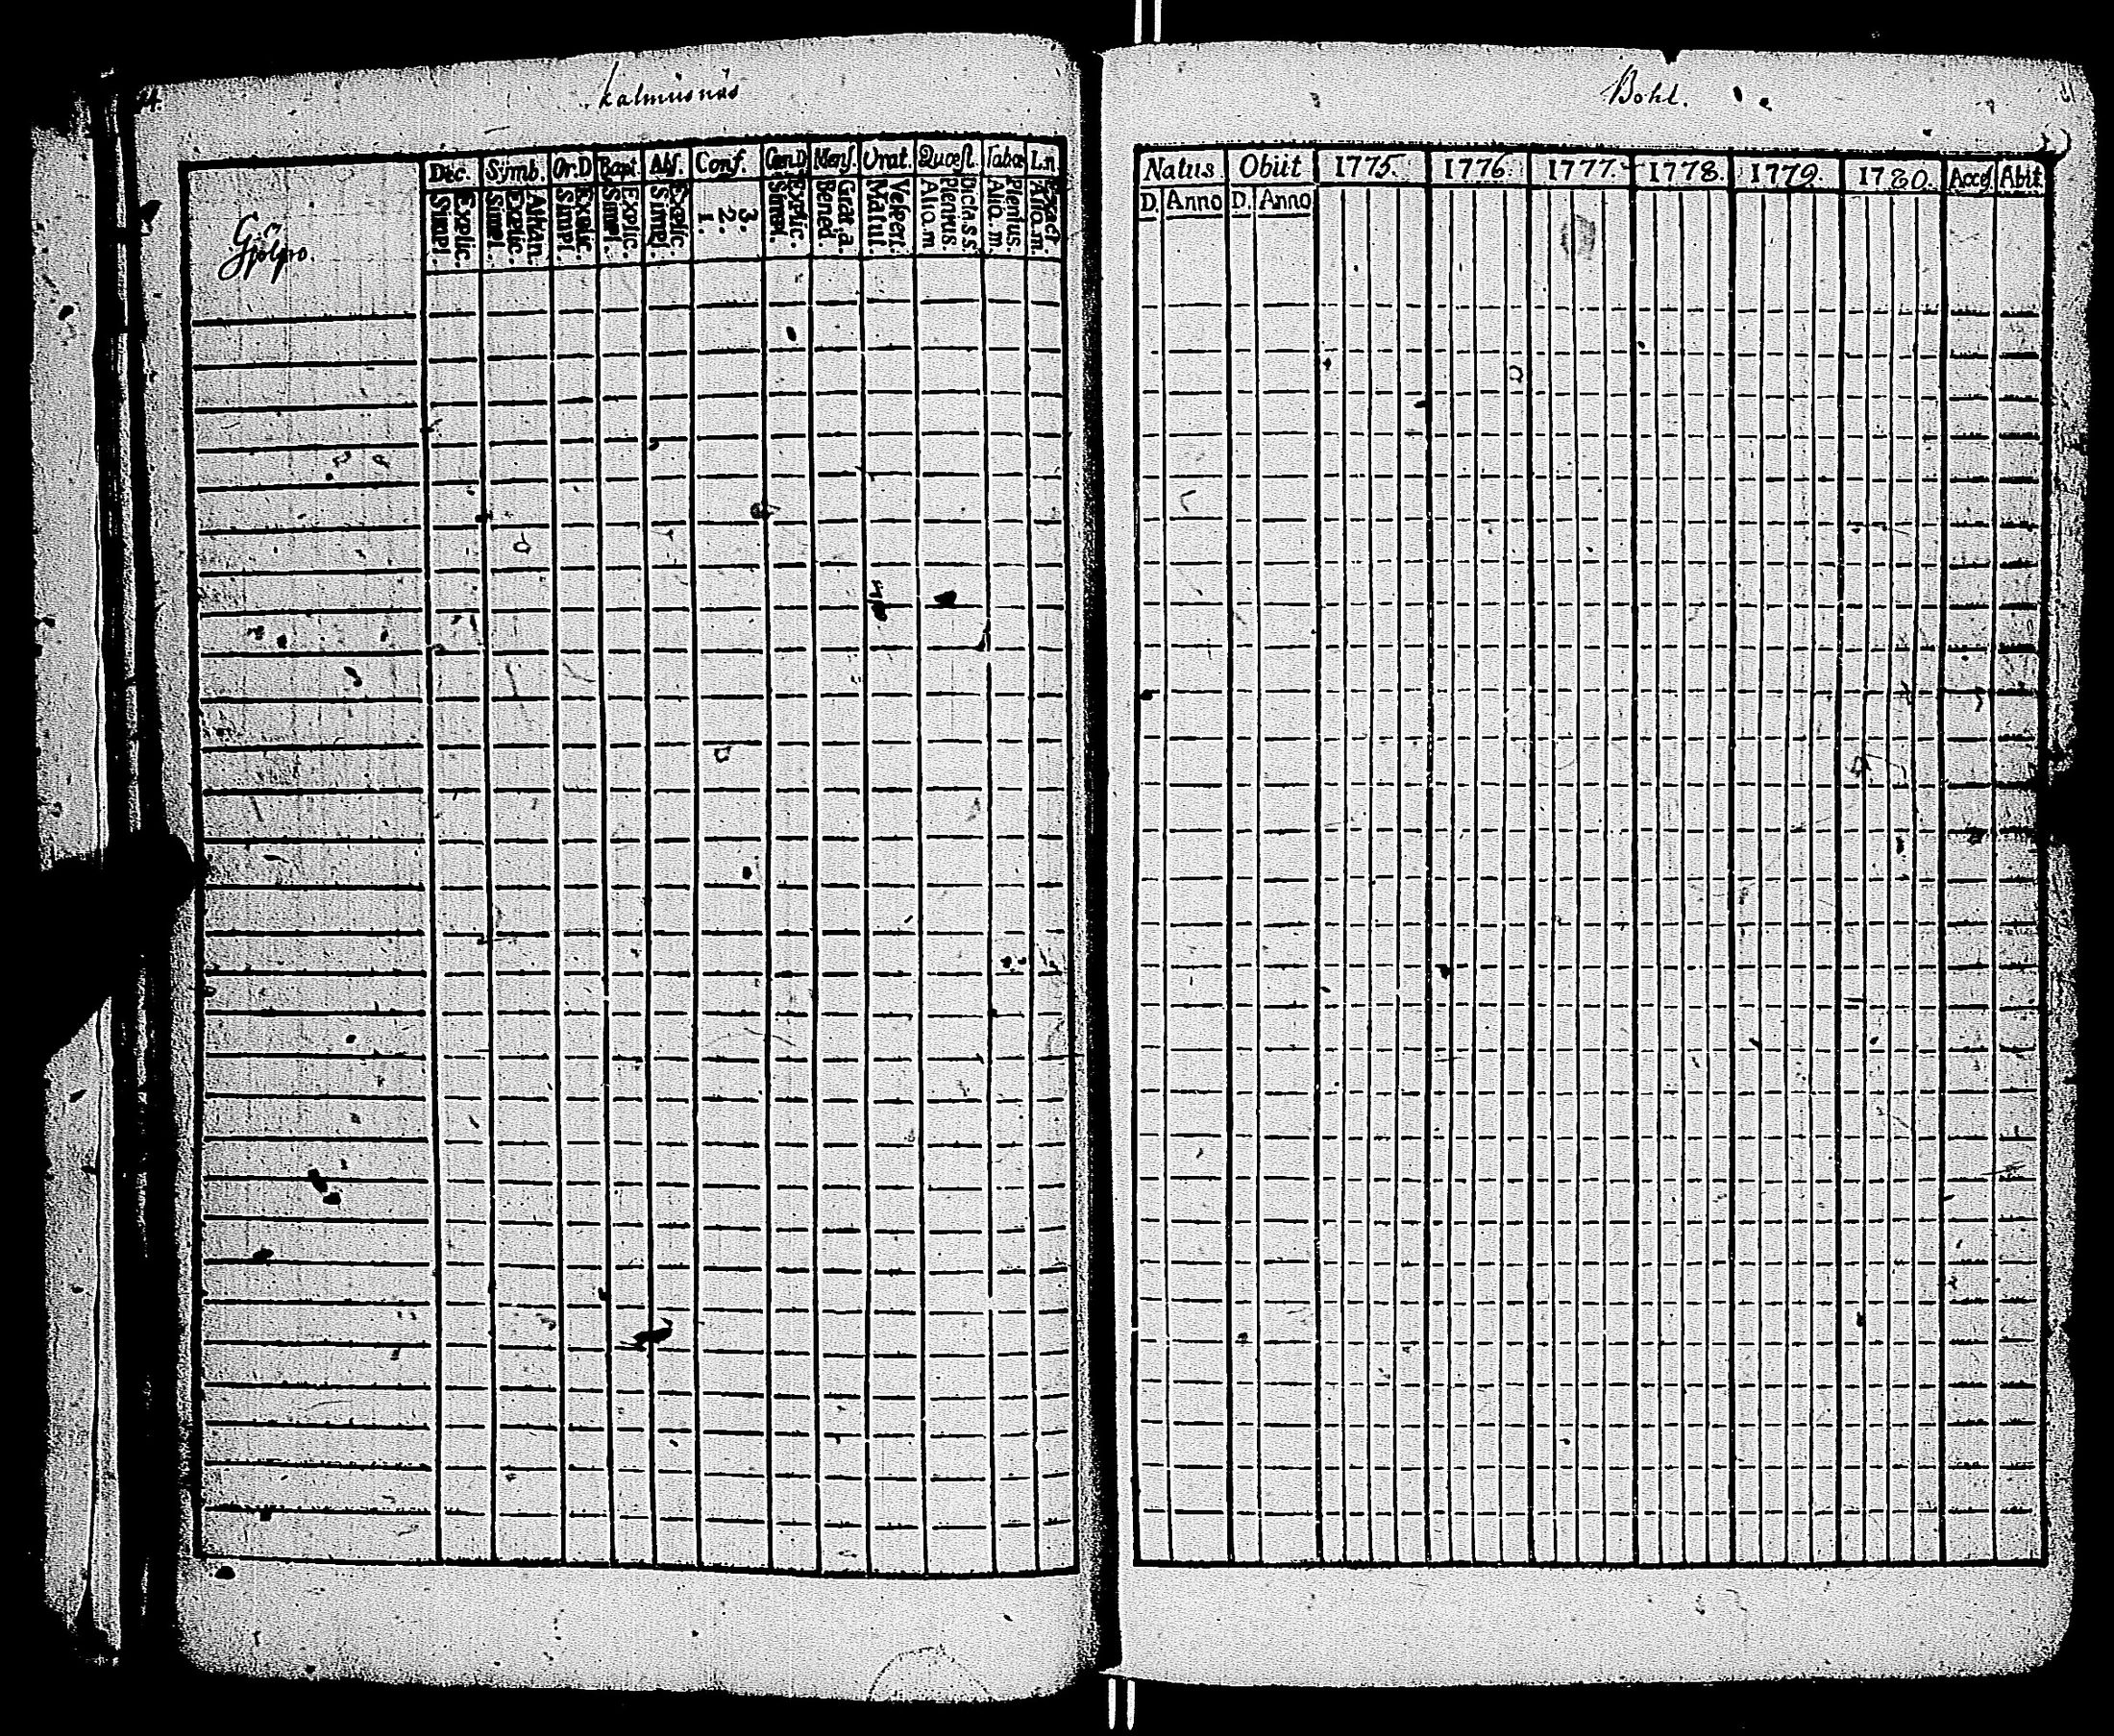 Kalmusnäs
Dec. Symb. Or.D Bapt. Abs. Conf. Cen.D Mens. Orat. Quæst. Tabœ L.n.
Simpl. Explic. Simpl. Explic. Athan. Simpl. Explic. Simpl. Explic. Simpl. Explic. 1. 2. 3. Simpl. Explic. Bened. Grat.a. Matut. Vesert. Alio.m Plenius Dicta.s.s Alio.m. Plenius. A??o.m. Exact
Bohl.
Natus Obiit 1775. 1776 1777. 1778. 1779. 1780. Acces Abit.
D. Anno D. Anno